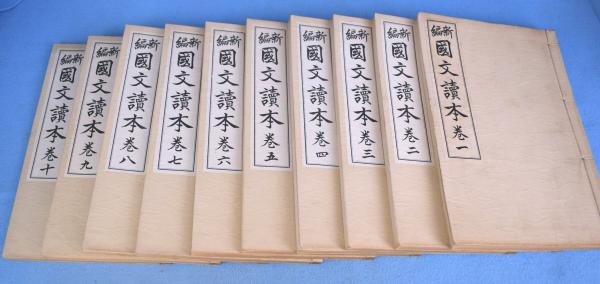 新編 國文讀本 卷一
新編 國文讀本 卷二
新編 國文讀本 卷三
新編 國文讀本 卷四
新編 國文讀本 卷五
新編 國文讀本 卷六
新編 國文讀本 卷七
新編 國文讀本 卷八
新編 國文讀本 卷九
新編 國文讀本 卷十